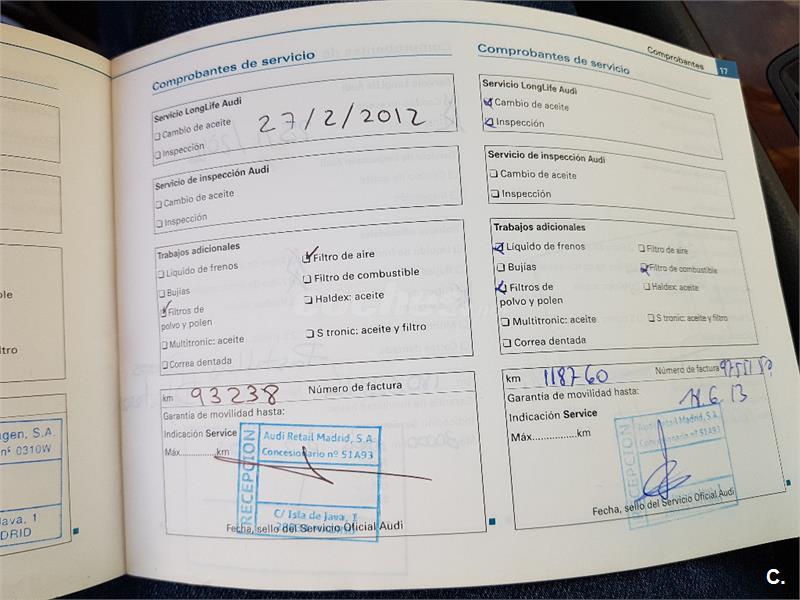 Comprobantes
17
Comprobantes de servicio
Servicio LongLife Audi
Cambio de aceite
27/2/2012
Inspección
Servicio de inspección Audi
Cambio de aceite
Inspección
Trabajos adicionales
Líquido de frenos
Bujías
Filtros de
polvo y polen
Multitronic: aceite
Correa dentada
Filtro de aire
Filtro de combustible
Haldex: aceite
S tronic: aceite y filtro
km 93238 Número de factura
Garantía de movilidad hasta:
Indicación Service
Máx...............km
RECEPCION
Audi Retail Madrid, S.A.
Concesionario nº 51A93
C/ Isla de Java, 1
Fecha, sello del Servicio Oficial Audi
Comprobantes de servicio
Servicio LongLife Audi
Cambio de aceite
Inspección
Servicio de inspección Audi
Cambio de aceite
Inspección
Trabajos adicionales
Líquido de frenos
Bujías
Filtros de
polvo y polen
Multitronic: aceite
Correa dentada
Filtro de aire
Filtro de combustible
Haldex: aceite
S tronic: aceite y filtro
km 118760 Número de factura
Garantía de movilidad hasta:
Indicación Service
Máx...............km
RECEPCION
Audi Retail Madrid, S.A.
Concesionario nº 51A93
Fecha, sello del Servicio Oficial Audi
ole
ltro
agen, S.A.
nº 0310W
Java, 1
DRID
C.